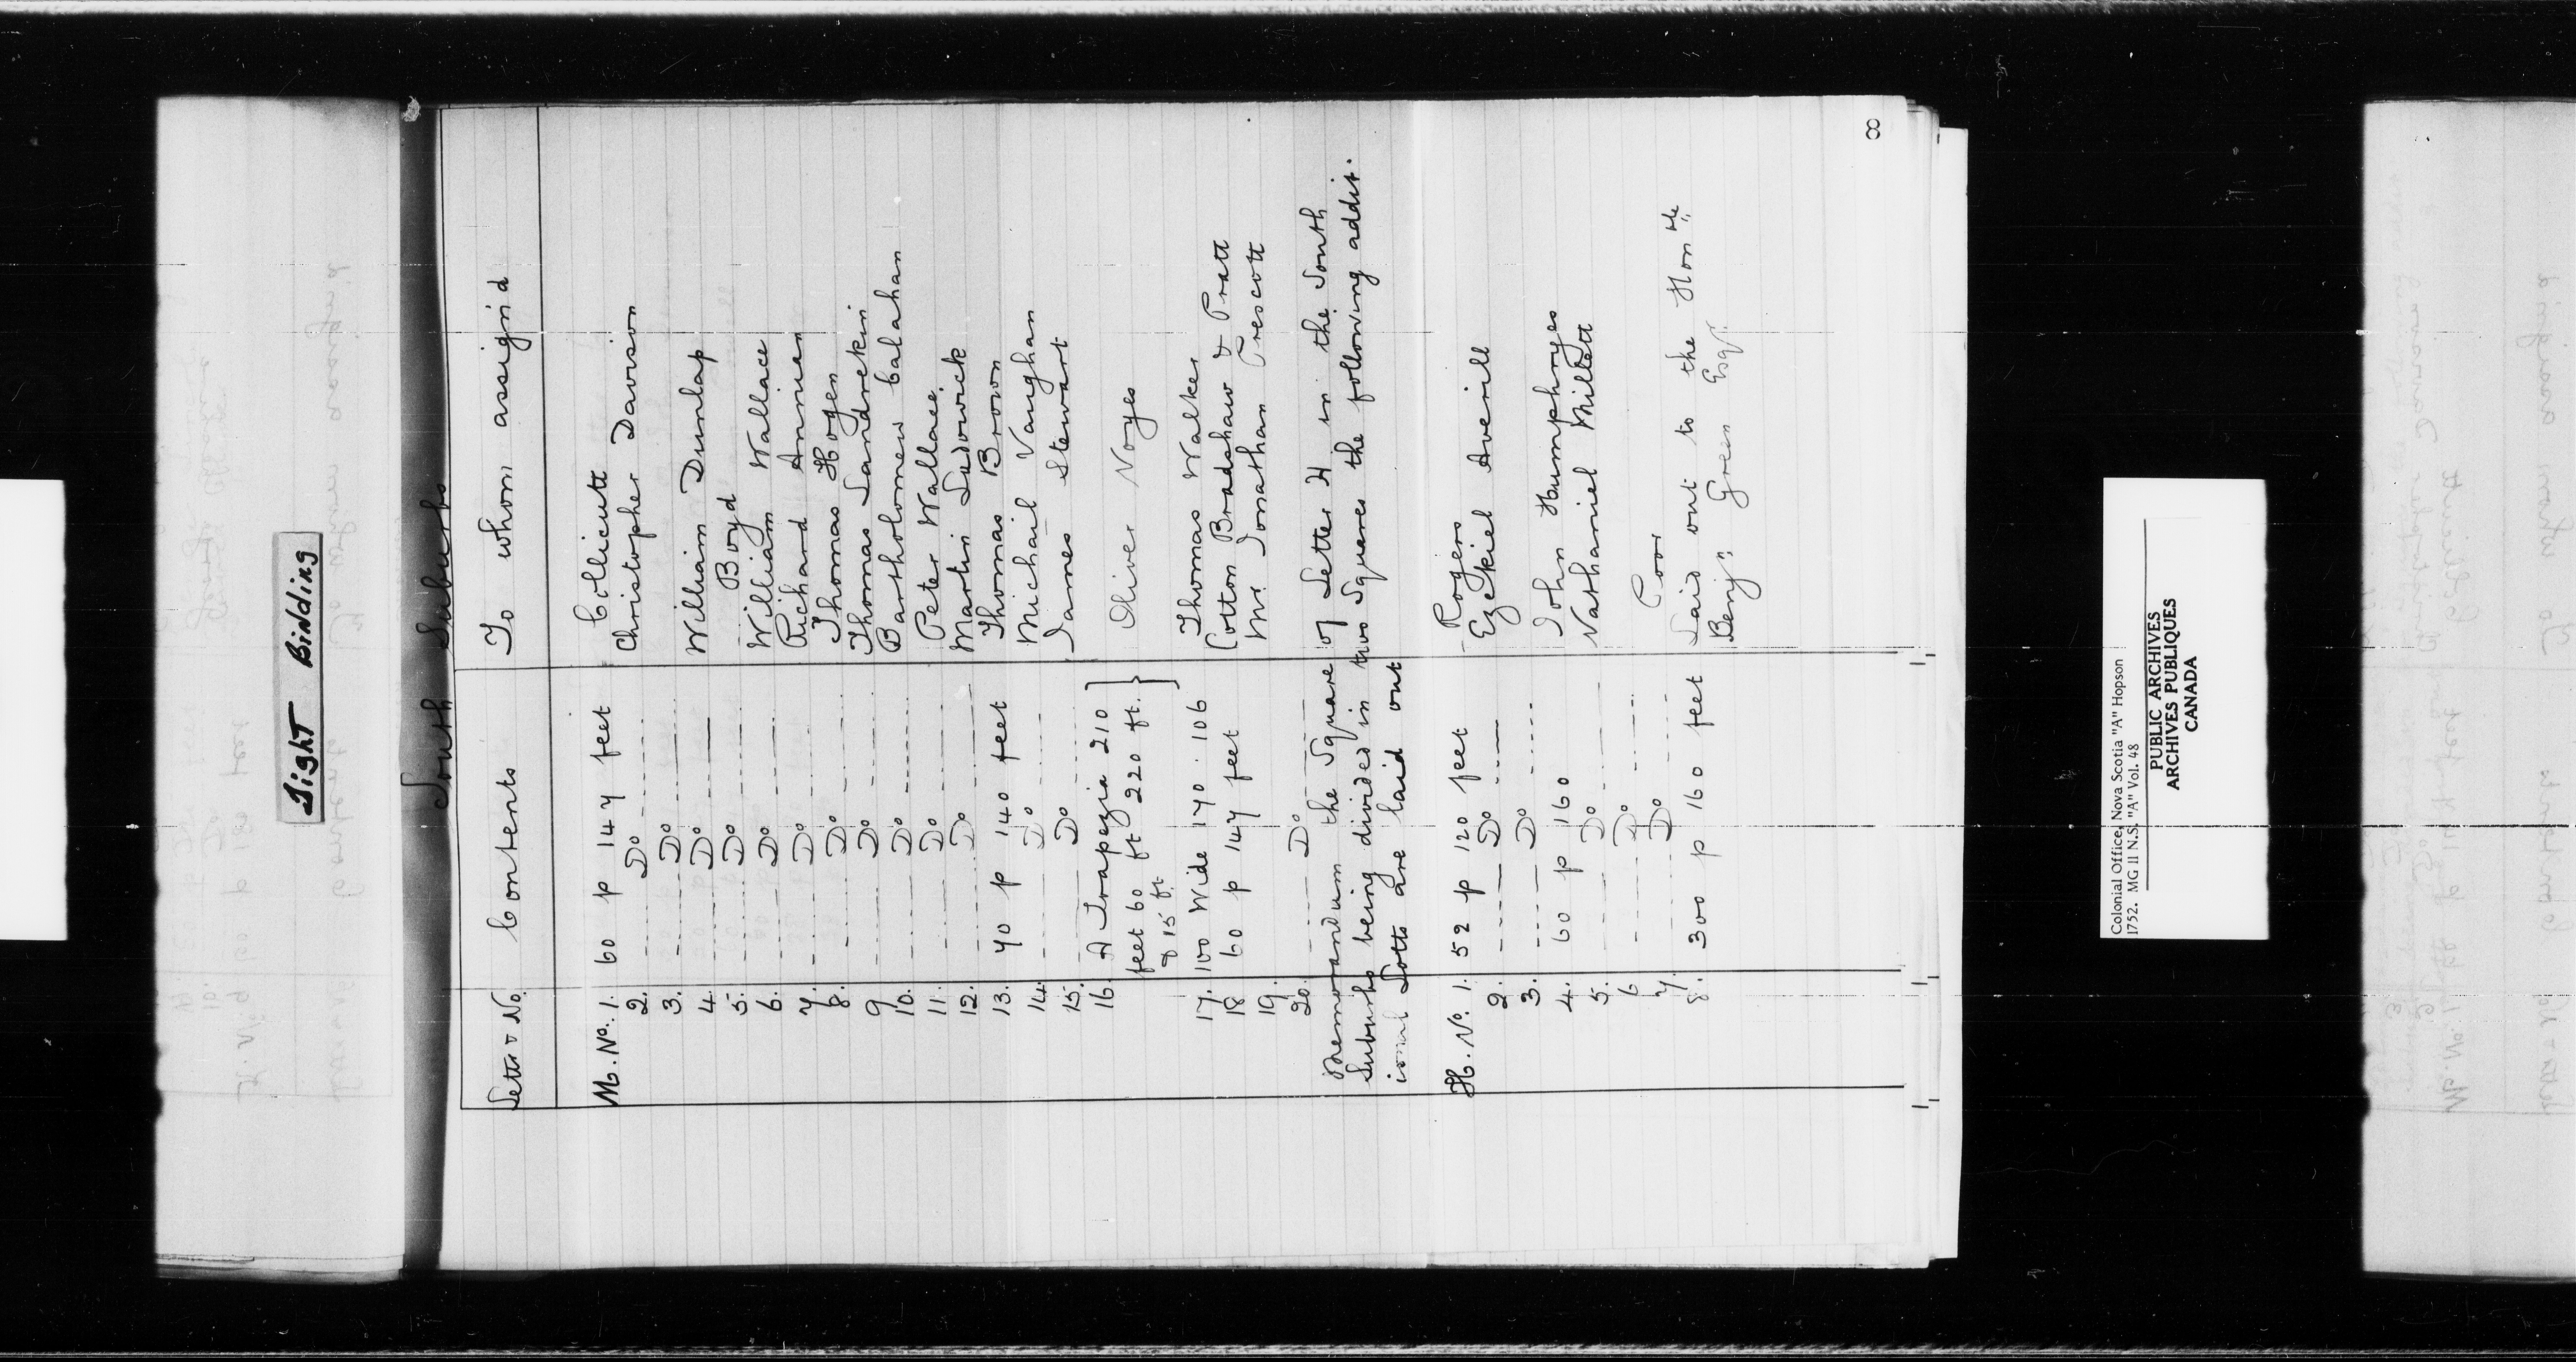 Tight Binding
South Suburbs
Letter & No. Contents To whom assign'd
M. No. 1. 60 p 147 feet Collicutt
2. Do Christopher Davison
3. Do
4. Do William Dunlap
5. Do Boyd
6. Do William Wallace
7. Do Richard Annuan
8. Do Thomas Hogen
9 Do Thomas Landrekin
10. Do Bartholomew Calahan
11. Do Peter Wallace
12. Do Martin Ludowick
13. 70 p 140 feet Thomas Brown
14. Do Michail Vaughan
15. Do James Stewart
16. A Trapezia 210
feet 60 ft 220 ft. Oliver Noyes
& 15 ft.
17. 100 Wide 170 . 106 Thomas Walker
18 60 p 147 feet Cotton Bradshaw & Pratt
19. Mr. Jonathan Prescott
20. Do
Memorandum the Square of Letter H in the South
Suburbs being divided in two Squares the following addit.
ional Lotts are laid out
H. No. 1. 52 p 120 feet Rogers
2. Do Ezekiel Averill
3. Do
4. 60 p 160 John Humphryes
5. Do Nathaniel Millett
6 Do
7. Do Poor
8. 300 p 160 feet Laid out to the Honble
Benjn Green Esqr.
8
Colonial Office, Nova Scotia "A" Hopson
1752. MG 11 N.S. "A" Vol. 48
PUBLIC ARCHIVES
ARCHIVES PUBLIQUES
CANADA